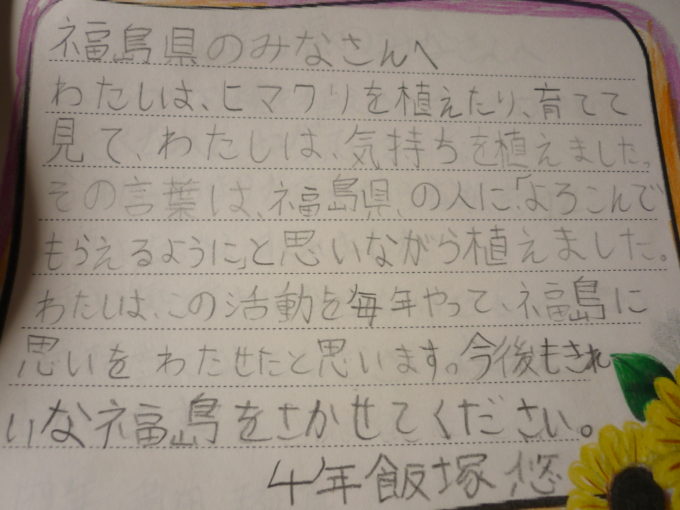 福島県のみなさんへ
わたしは、ヒマワリを植えたり、育てて
見て、わたしは、気持ちを植えました。
その言葉は、福島県、の人に「よろこんで
もらえるように」と思いながら植えました。
わたしは、この活動を毎年やって、福島に
思いをわたせたと思います。今後もきれ
いな福島をさかせてください。
4年飯塚悠